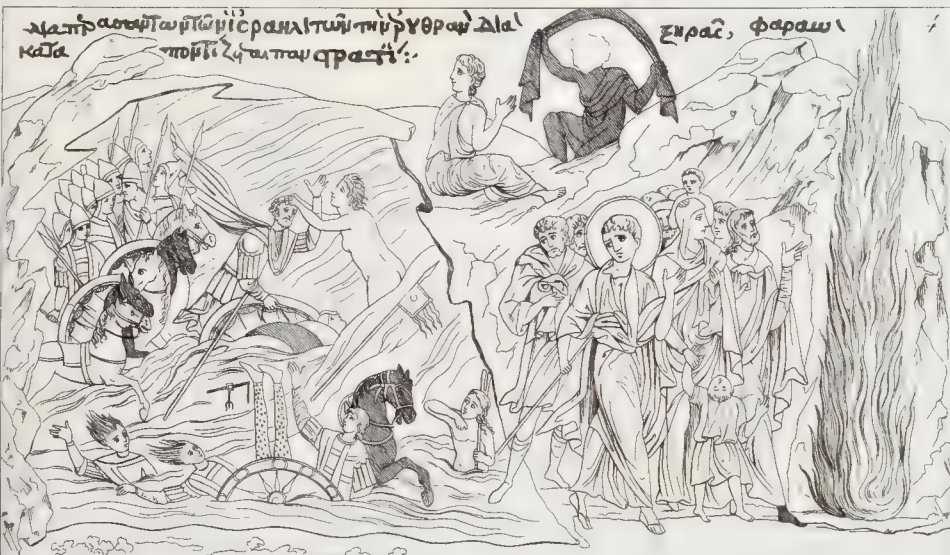 διαπρασαντωντῶνἰσραηλιτῶν τὴν ρυθρὰν διὰ ξηρᾶς, φαραὼ
κατα ποντίζεται πανστρατί:·